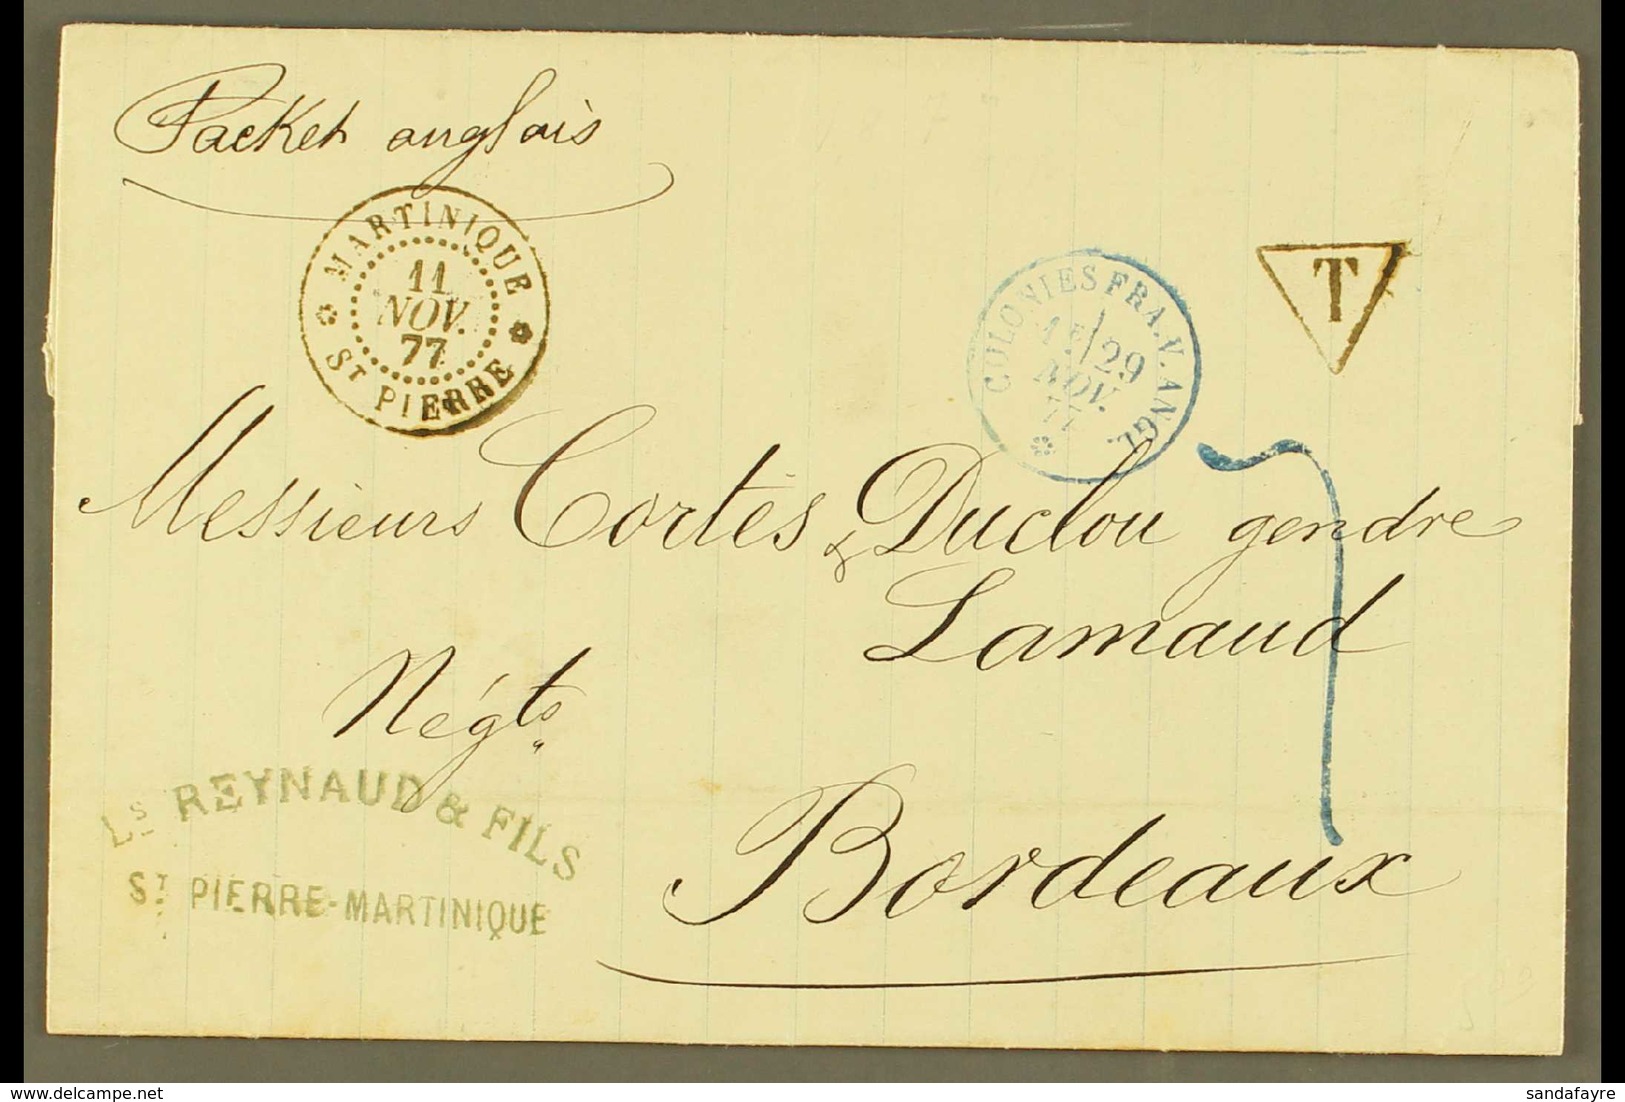 Packet anglais
MARTINIQUE
11
NOV.
77
ST PIERRE
COLONIES FRA. V. ANGL.
29
NOV.
77
T
7
Messieurs Cortès & Duclou gendre
Lamaud
Négts
Bordeaux
Ls REYNAUD & FILS
ST PIERRE-MARTINIQUE
sandafayre